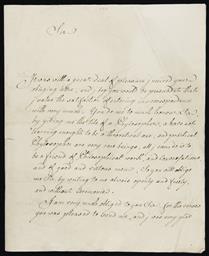 Sir
It was with a great deal of pleasure I received your
obliging letter, and I beg you would be persuaded that
I value the satisfaction of entering in correspondence
with any man. You do me too much honour, Sir,
by giving me the title of a Philosopher, I have not
learning enought to be a theoretical one, and practical
Philosophers are very rare beings, all I can do is to
be a friend of Philosophical work, and conversations,
and of good and virtuous men; so you will oblige
me Sir, by writing to me always openly and freely,
and without Ceremonie.
I am very much obliged to you Sir, for the
you was pleased to send me, and I are very glad